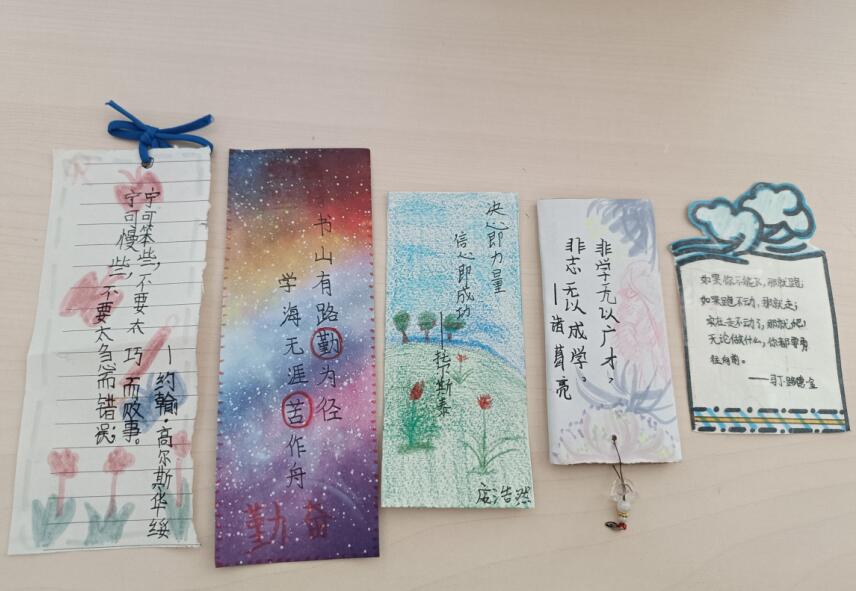 宁可慢些,不要太急而错误;
宁可笨些,不要太巧而败事。
—约翰·高尔斯华绥
书山有路勤为径
学海无涯苦作舟
勤奋
决心即力量
信心即成功
——托尔斯泰
浩然
非学无以广才,
非志无以成学。
—诸葛亮
如果你不能飞,那就跑;
如果跑不动,那就走;
实在走不动了,那就爬;
无论做什么,你都要勇
往向前。
——马丁·路德·金